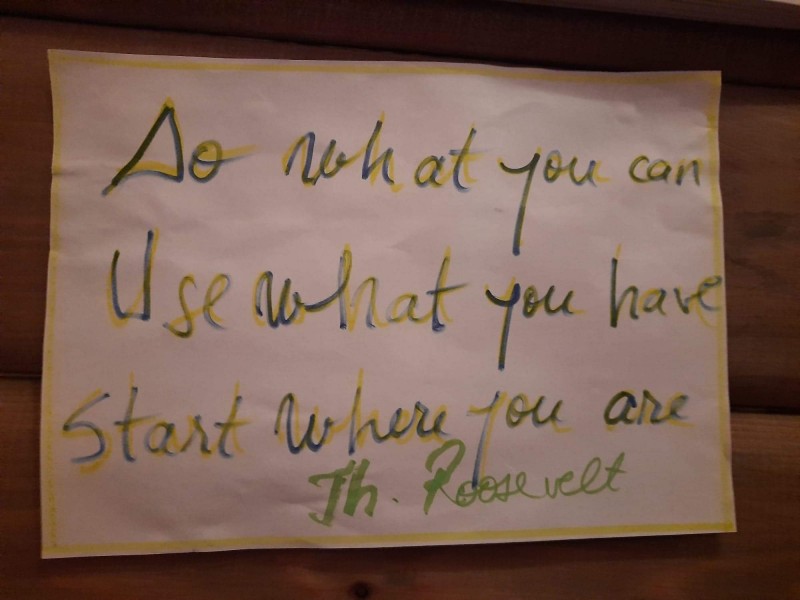 Do what you can
Use what you have
Start where you are
Th. Roosevelt